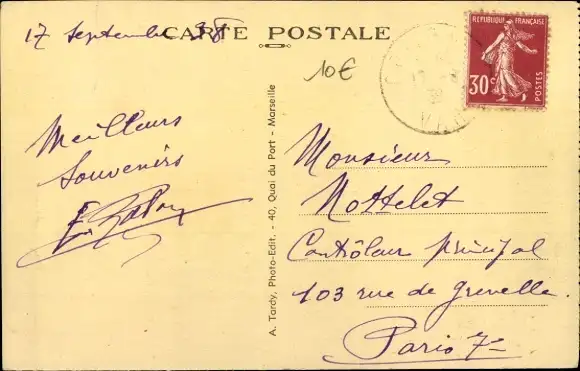 17 Septembre 38
CARTE POSTALE
10€
REPUBLIQUE FRANÇAISE
30c
POSTES
Meilleurs
Souvenirs
A. Tardy, Photo-Edit. - 40, Quai du Port - Marseille
Monsieur
Nottelet
Contrôleur principal
103 rue de Grenelle
Paris 7e